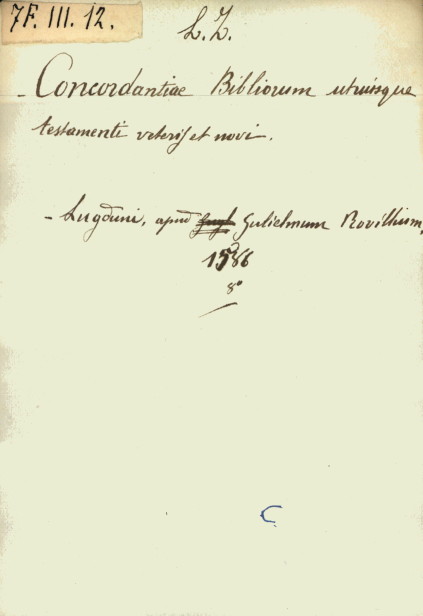 7F. III. 12.
L. Z.
- Concordantiae Bibliorum utriusque
testamenti veteris et novi.
- Lugduni, apud Gulielmum Rovillium,
1586
8°
C